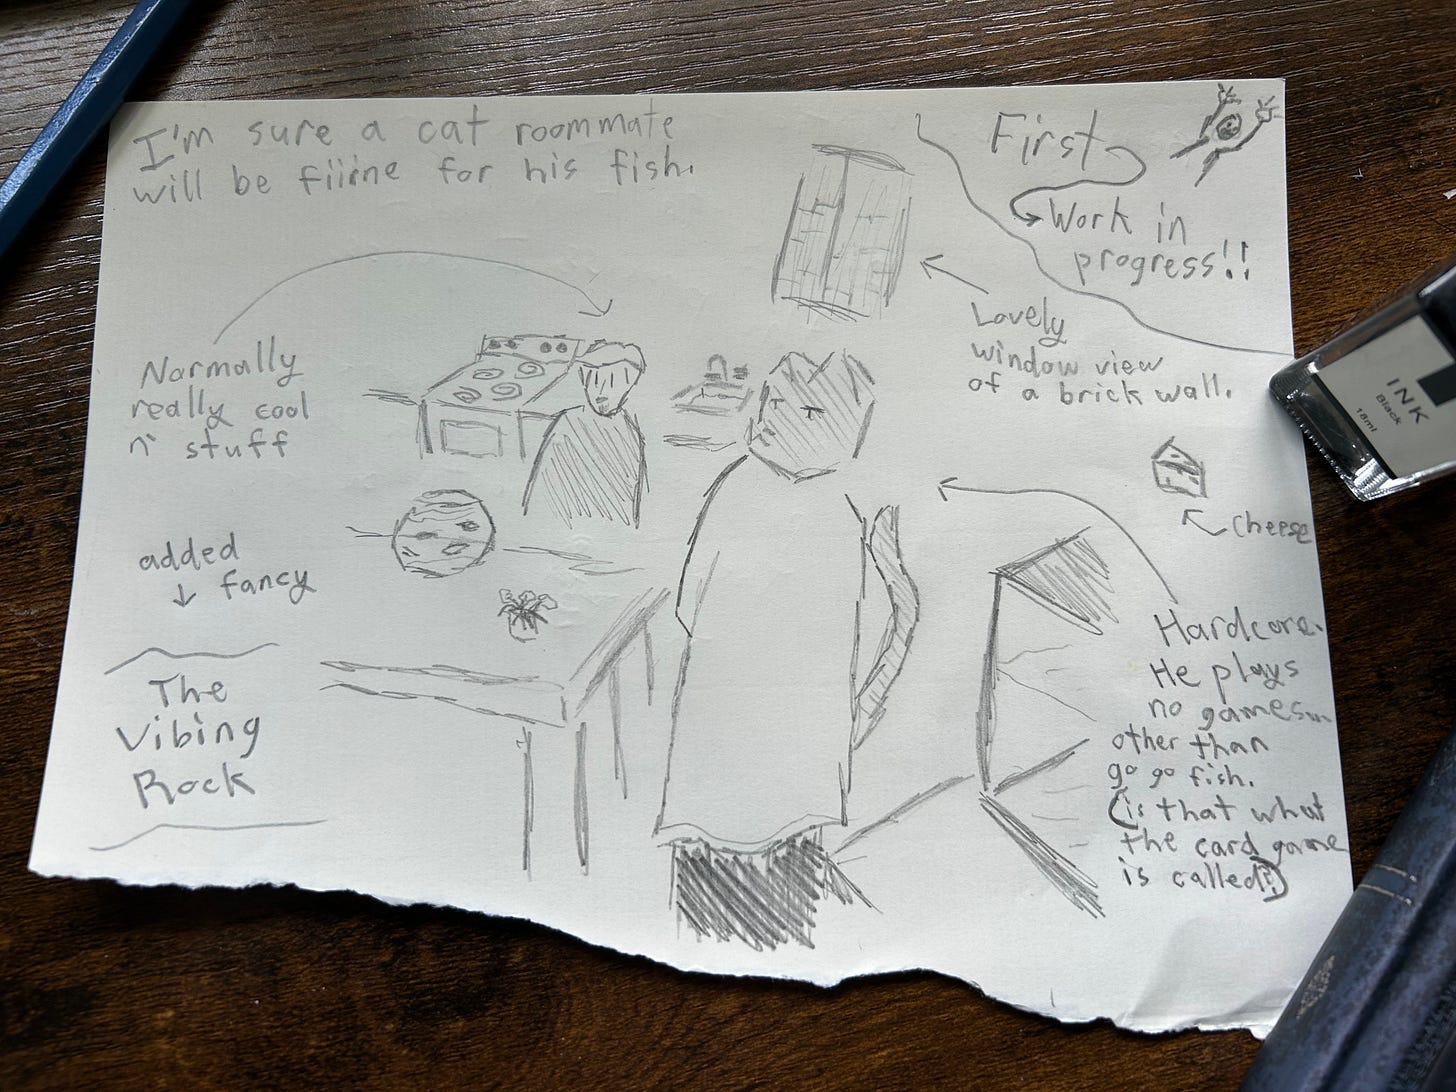 I'm sure a cat roommate
will be fiiine for his fish.
First
Work in
progress!!
Lovely
window view
of a brick wall.
Normally
really cool
n' stuff
Cheese
added
fancy
The
Vibing
Rock
Hardcore.
He plays
no games...
other than
go go fish.
(is that what
the card game
is called?)
INK
Black
18ml